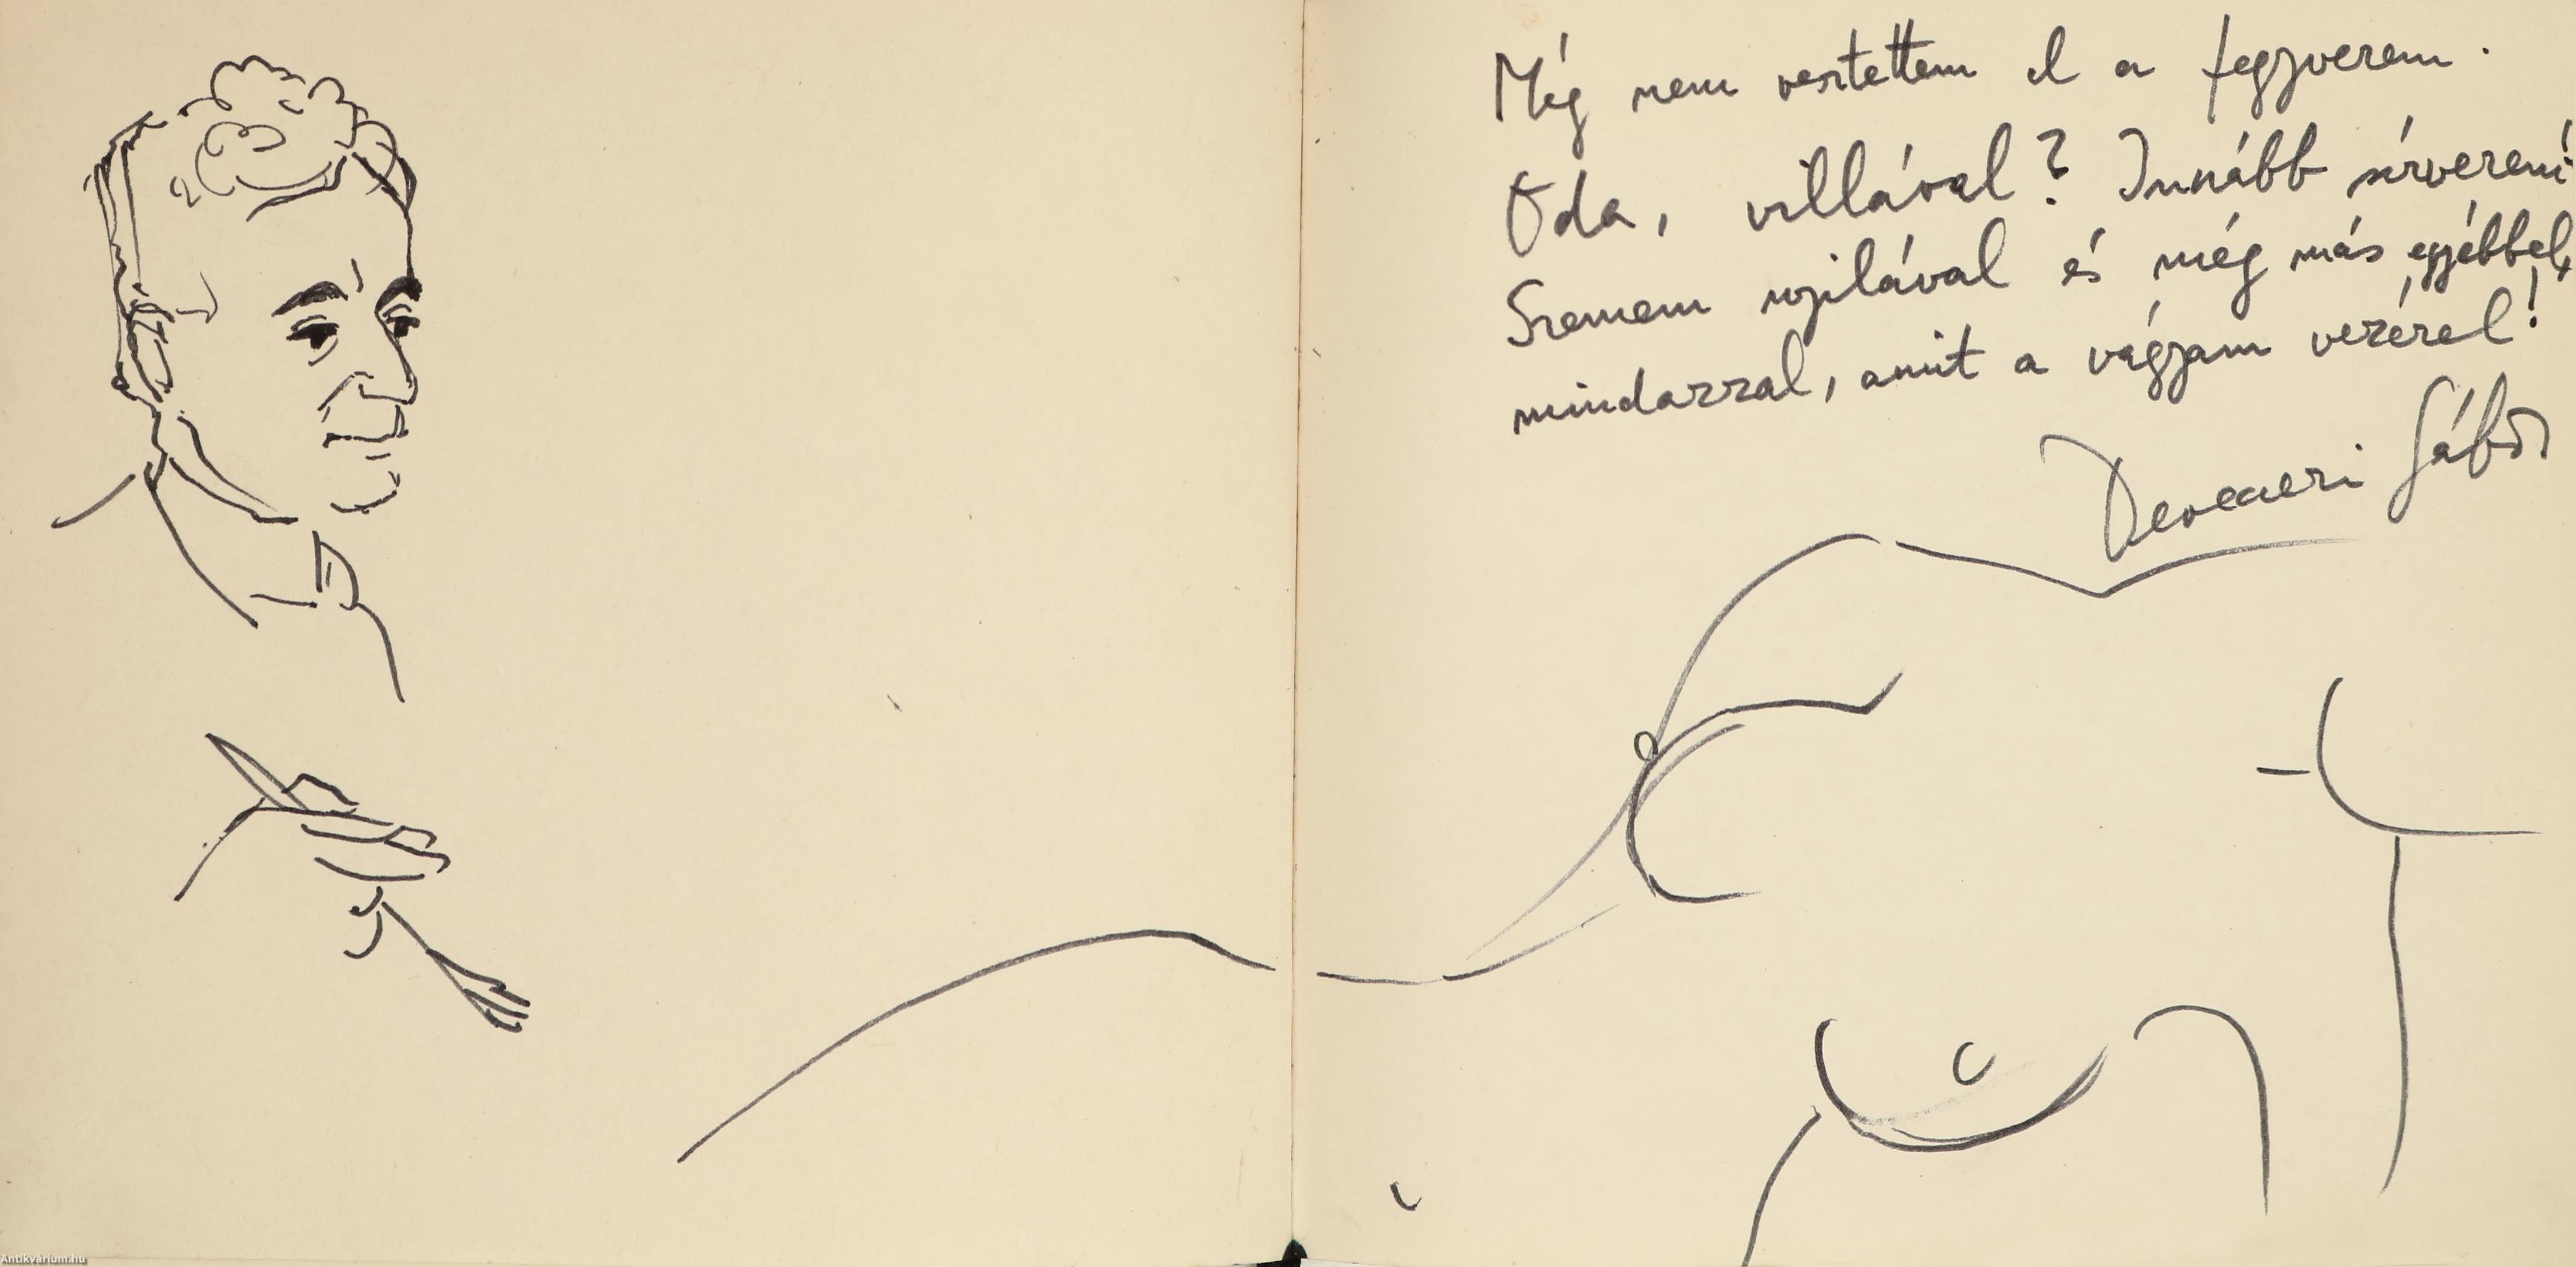 Még nem vesztettem el a fegyverem.
Óda, villával? Inkább szívverem
Szemem nyilával és még más egyébbel,
mindazzal, amit a vágyam vezérel!
Devecseri Gábor
Antikvárium.hu